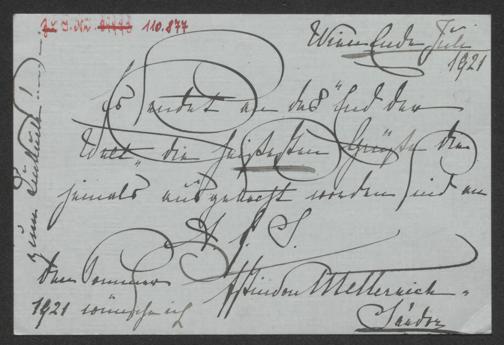 Zu I. Nr. 110.877
Wien Ende Juli
1921
Es sendet an das "End der
Welt" die heißesten Grüße die
jemals ausgekocht worden sind an
A. J. S.
den Sommer
1921 wünsche ich
Metternich-
Sándor
zum